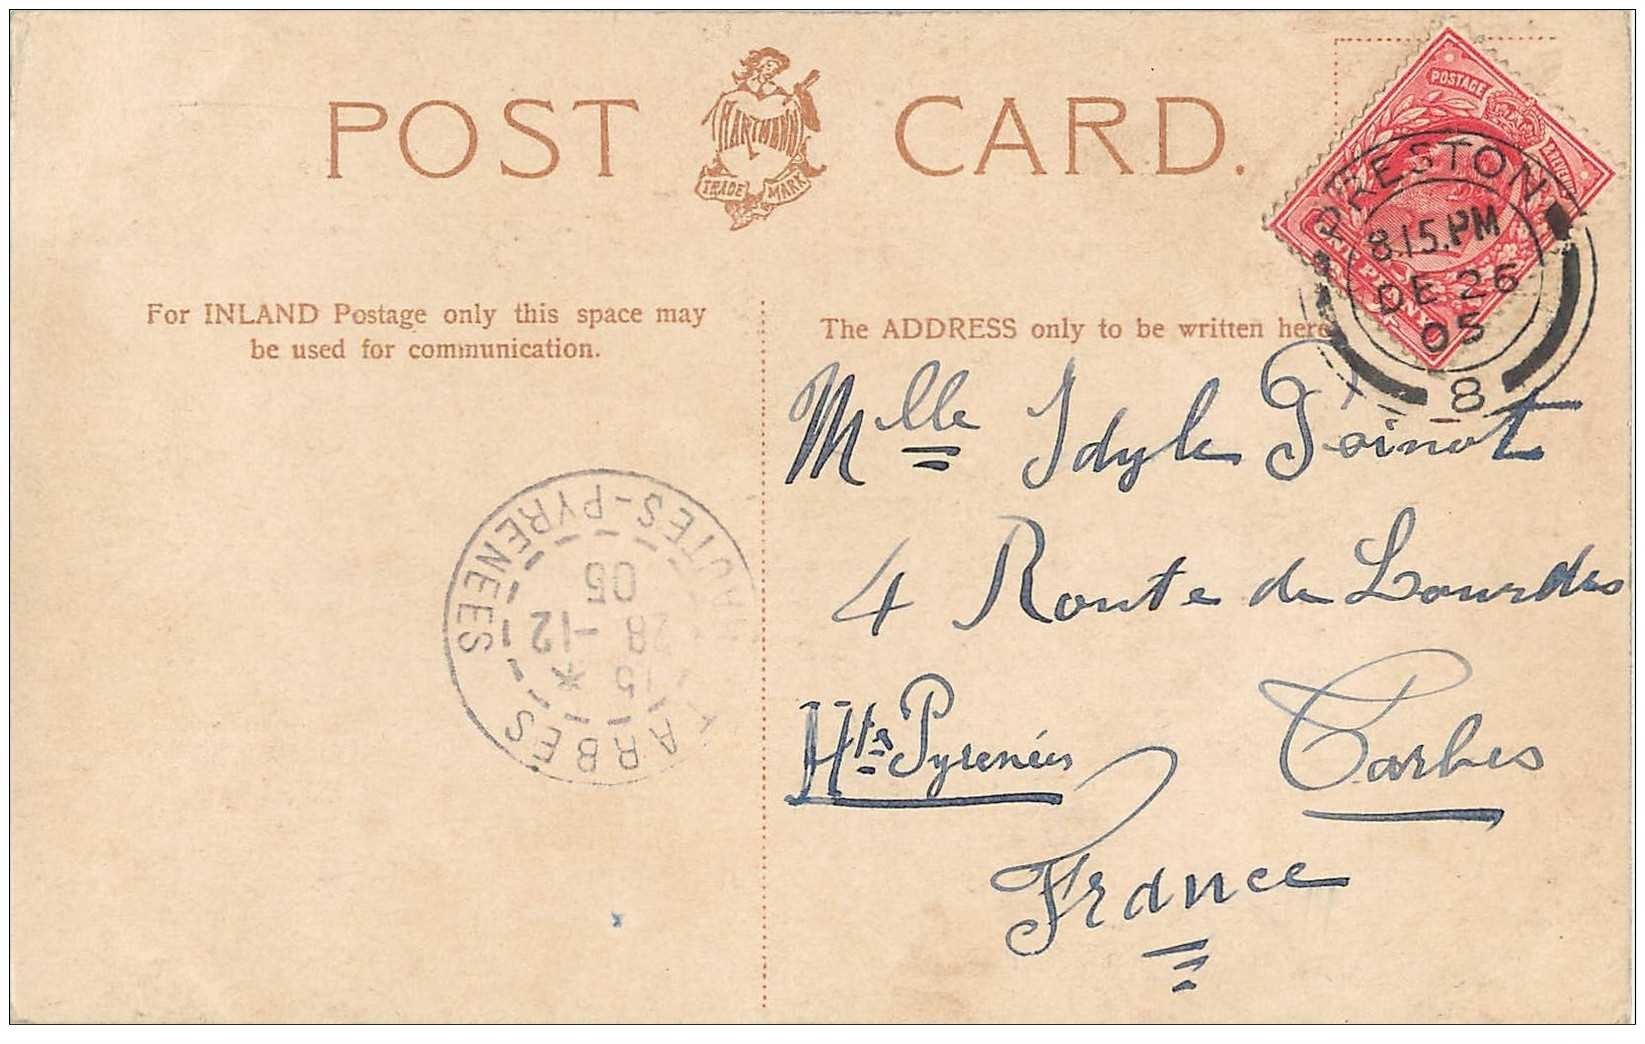 POST CARD.
HARTMANN
TRADE MARK
POSTAGE
REVENUE
ONE PENNY
PRESTON
8.15.PM
DE 26
05
8
For INLAND Postage only this space may
be used for communication.
The ADDRESS only to be written here
Mlle Idyle Poinot
4 Route de Lourdes
Tarbes
Htes Pyrenées
France
TARBES
15
28-12
05
HAUTES-PYRENEES